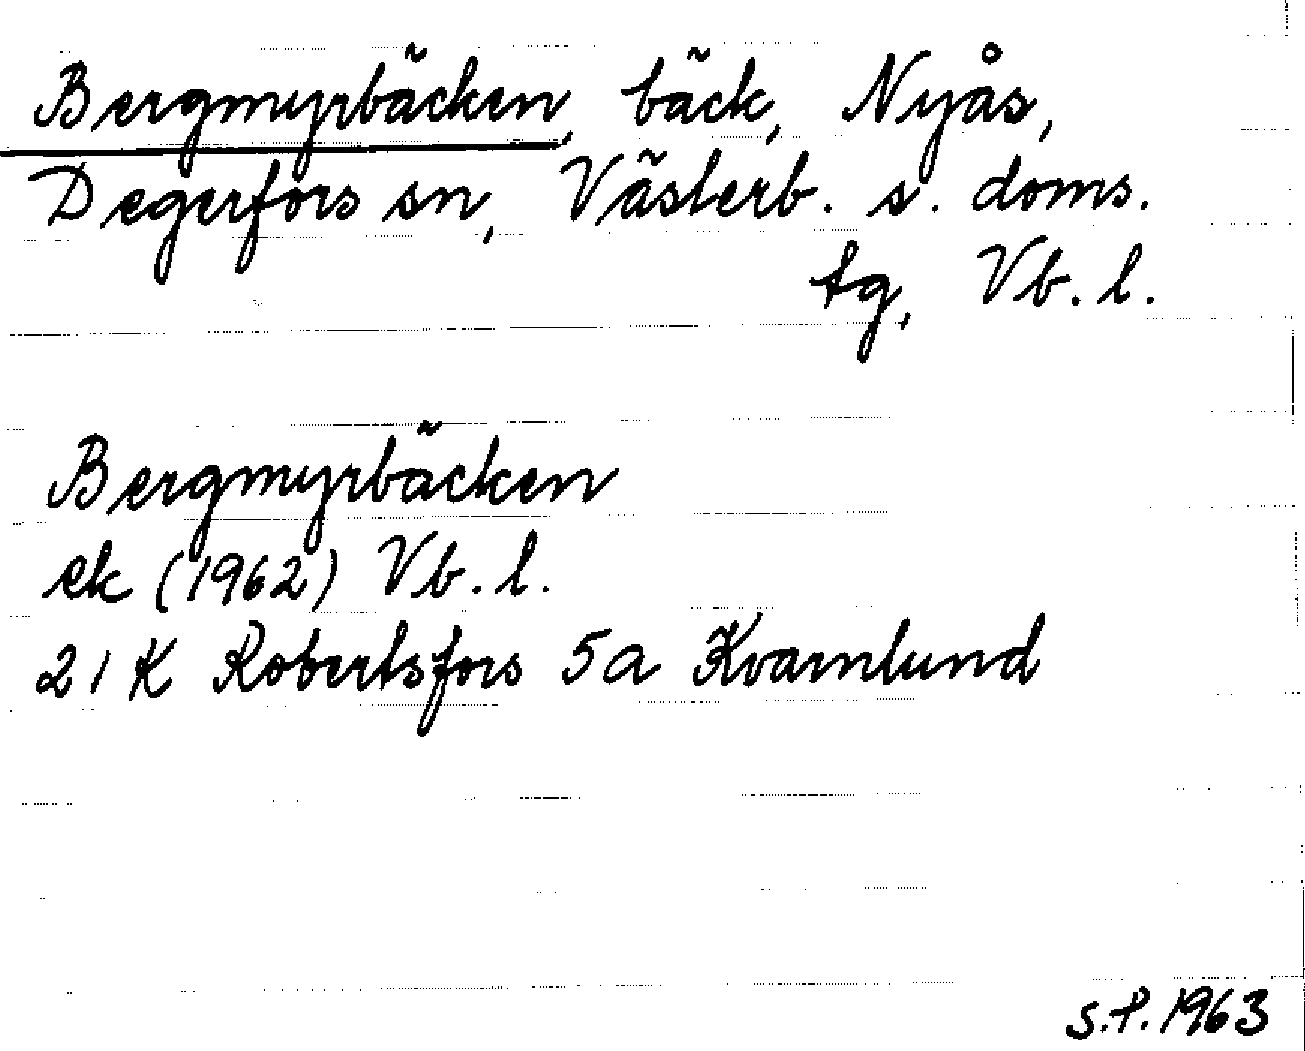 Bergmyrbäcken, bäck, Nyås,
Degerfors sn, Västerb. s. doms.
tg, Vb. l.
Bergmyrbäcken
ek (1962) Vb. l.
21 K Robertsfors 5a Kvarnlund
S.P. 1963